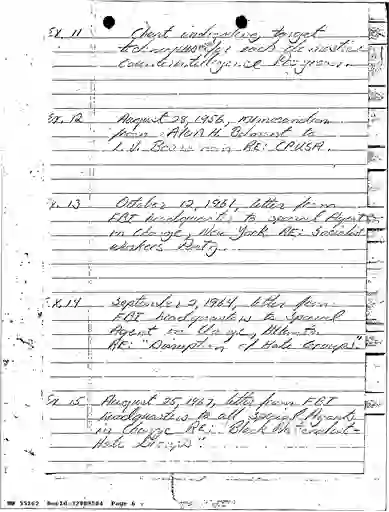 Ex. 11 Chart indicating target
techniques for each domestic
counterintelligence Program
Ex. 12 August 28, 1956, memorandum
from Alan H. Belmont to
L.V. Boardman RE: CPUSA.
x. 13 October 12, 1961, letter from
FBI headquarters to special Agent
in charge, New York RE: Socialist
Workers Party.
Ex. 14 September 2, 1964, letter from
FBI headquarters to Special
Agent in Charge, Atlanta
RE: "Disruption of Hate Groups"
Ex. 15 August 25, 1967, letter from FBI
headquarters to all Special Agents
in Charge RE: "Black Nationalist-
Hate Groups"
NW 55162 DocId:32989584 Page 6